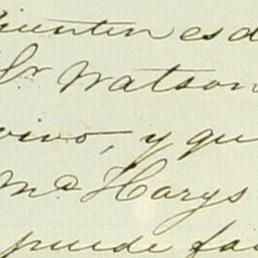 cuenten es d
Sr Watson
vino, y que
Ma Harys
puede fa